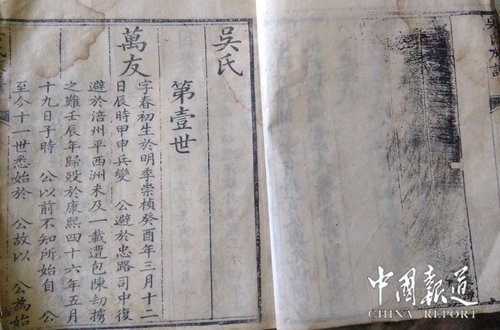 吳氏
第壹世
萬友
字春初生於明季崇禎癸酉年三月十二
日辰時甲申兵變 公避於忠路司中後
避於涪州平西洲未及一載遭包陳劫擄
之難壬辰年歸歿於康熙四十六年五月
十九日子時 公以前不知所始自 公
至今十一世悉始於 公故以 公為始
中國報道
CHINA REPORT